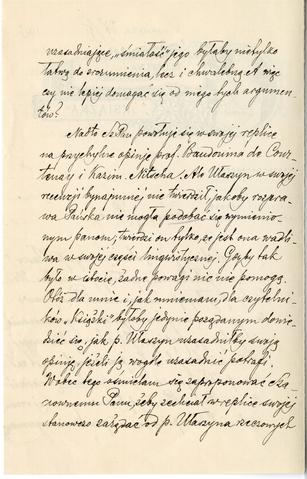 uzasadniające, „śmiałość” jego byłaby nietylko
łatwą do zrozumienia, lecz i chwalebną. A więc
czy nie lepiej domagać się od niego tych argumen-
tów?
Nadto Sz. Pan powołuje się w swojej replice
na przychylne opinje prof. Baudouina de Cour-
tenay i Kazim. Nitscha. Ale Ułaszyn w swojej
recenzji bynajmniej nie twierdził, jakoby rozpra-
wa Pańska nie mogła podobać się wymienio-
nym panom, twierdzi on tylko, że jest ona wadli-
wa w swojej części lingwistycznej. Gdyby tak
było w istocie, żadne powagi nie nie pomogą.
Otóż dla mnie i, jak mniemam, dla czytelni-
ków „Książki” byłoby jedynie pożądanym dowie-
dzieć się, jak p. Ułaszyn uzasadniłby swoją
opinję, jeśli ją wogóle uzasadnić potrafi.
Wobec tego ośmielam się zaproponować Sza-
nownemu Panu, żeby zechciał w replice swojej
stanowczo zażądać od p. Ułaszyna rzeczowych